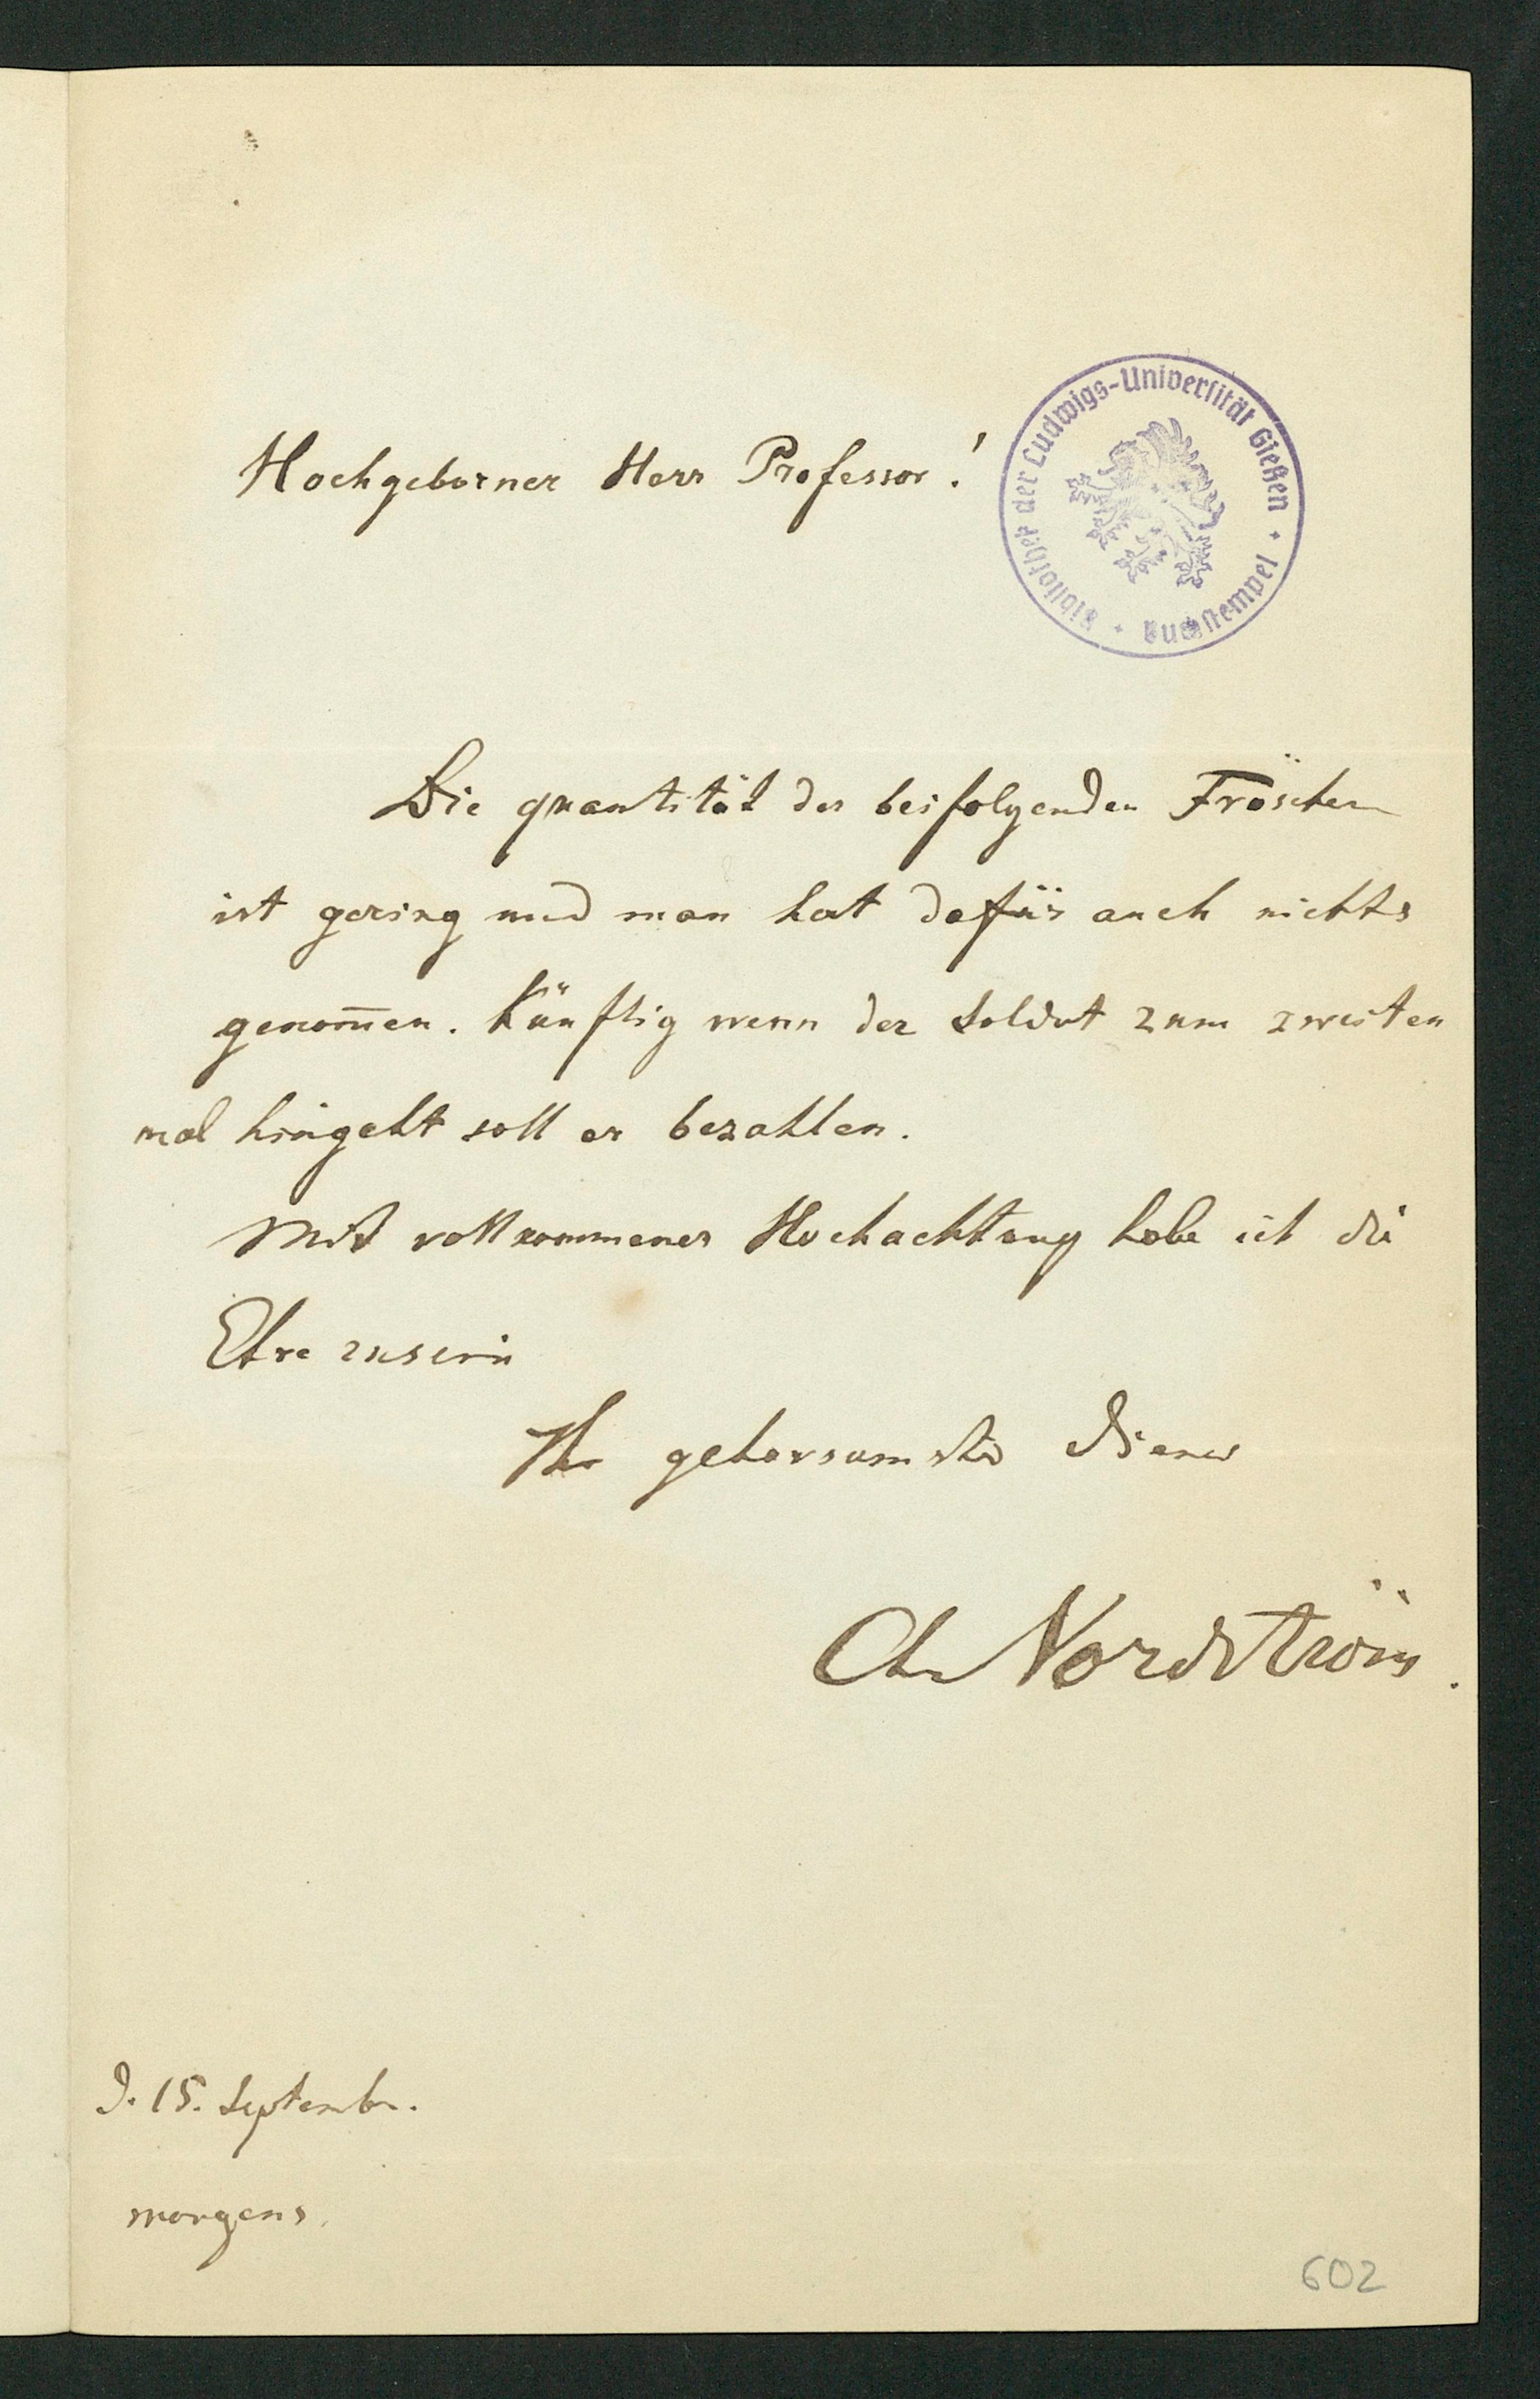 Hochgeborner Herr Professor!
Bibliothek der Ludwigs-Universität Gießen
Buchstempel
Die quantität der beifolgenden Fröschen
ist gering und man hat dafür auch nichts
genom̅en. Künftig wenn der Soldat zum zweiten
mal hingeht soll er bezahlen.
Mit vollkommener Hochachtung habe ich die
Ehre zusein
Ihr gehorsamster Diener
Al. Nordström.
D. 15. Septembr.
morgens.
602